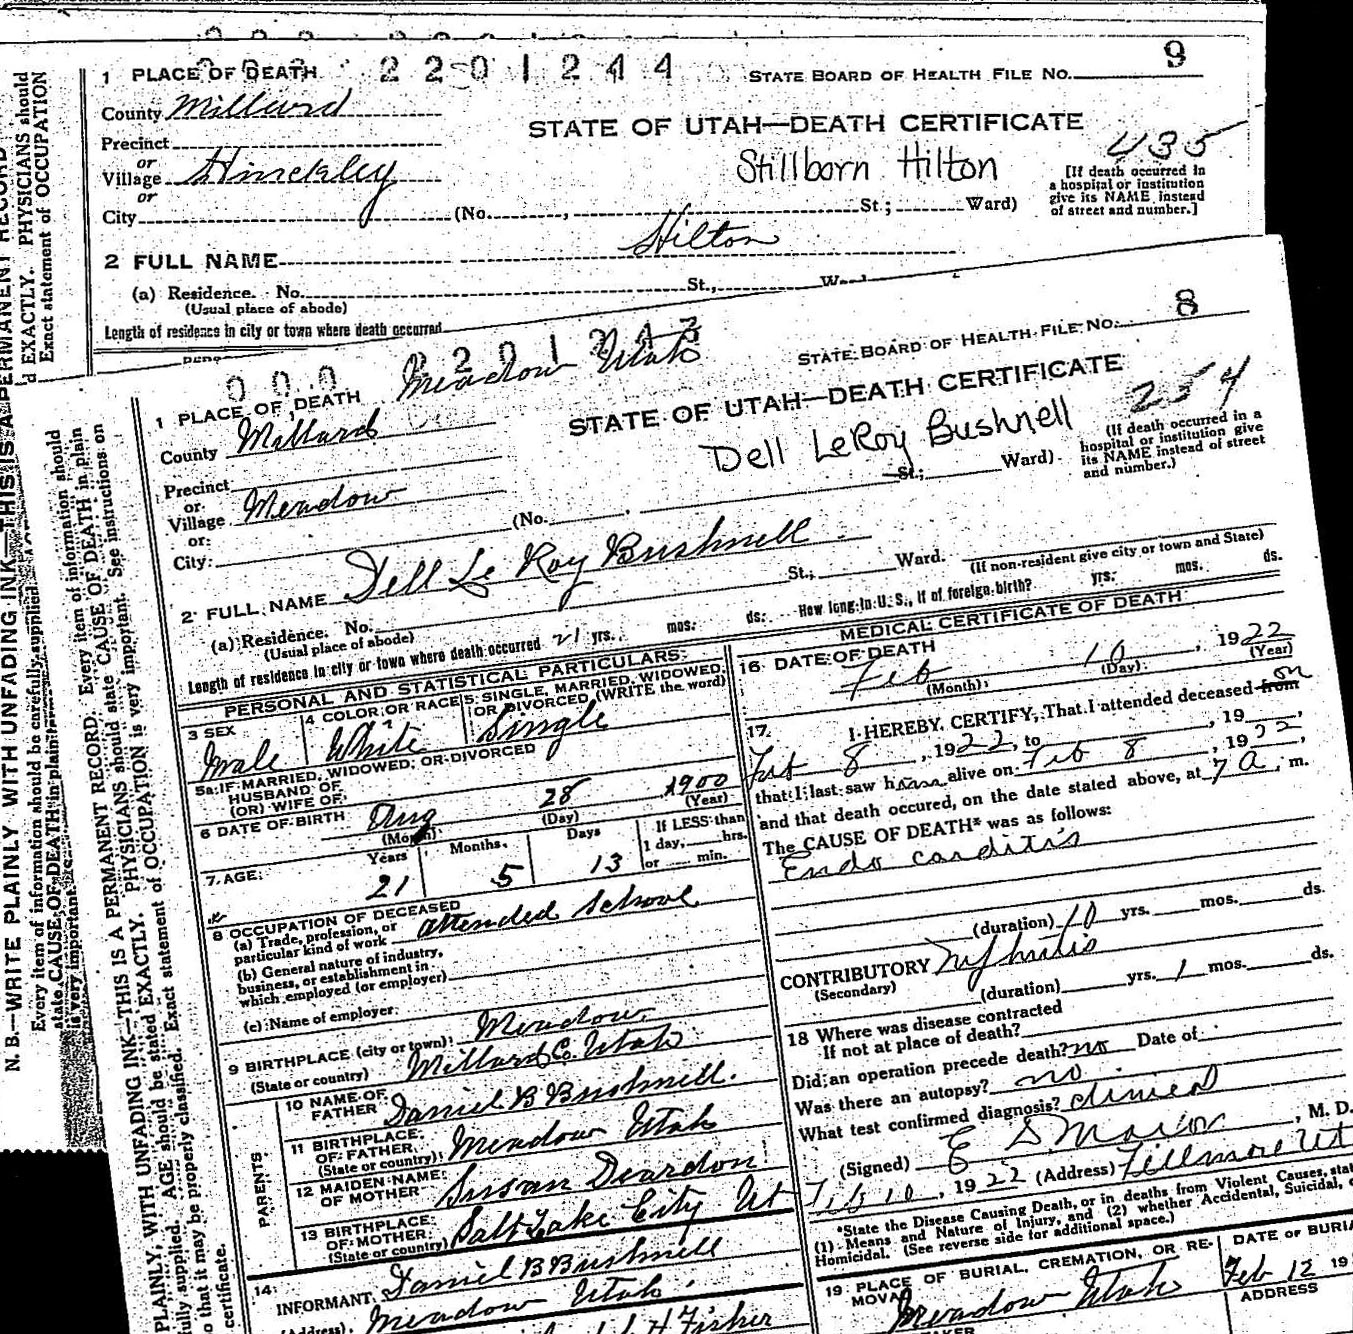 1 PLACE OF DEATH 2201244 STATE BOARD OF HEALTH FILE NO. 9
County Millard
STATE OF UTAH—DEATH CERTIFICATE
Precinct
435
or
Village Hinckley
Stillborn Hilton
[If death occurred in
a hospital or institution
give its NAME instead
of street and number.]
or
City (No. , St.; Ward)
2 FULL NAME Hilton
(a) Residence. No. St.,
(Usual place of abode)
Length of residence in city or town where death occurred
000 2201243
Meadow Utah
STATE BOARD OF HEALTH FILE NO. 8
1 PLACE OF DEATH
STATE OF UTAH—DEATH CERTIFICATE
254
County Millard
Dell LeRoy Bushnell
(If death occurred in a
hospital or institution give
its NAME instead of street
and number.)
Precinct
or
Village Meadow
or
City: (No. , St.; Ward)
2 FULL NAME Dell Le Roy Bushnell
(a) Residence. No. St., Ward.
(Usual place of abode) (If non-resident give city or town and State)
Length of residence in city or town where death occurred 21 yrs. mos. ds. How long in U. S., if of foreign birth? yrs. mos. ds.
PERSONAL AND STATISTICAL PARTICULARS
3 SEX
Male
4 COLOR OR RACE
White
5 SINGLE, MARRIED, WIDOWED,
OR DIVORCED (WRITE the word)
Single
5a IF MARRIED, WIDOWED, OR DIVORCED
HUSBAND OF
(OR) WIFE OF
6 DATE OF BIRTH Aug 28 1900
(Month) (Day) (Year)
7. AGE: Years Months Days If LESS than
1 day, hrs.
or min.
21 5 13
8 OCCUPATION OF DECEASED
(a) Trade, profession, or
particular kind of work attended school
(b) General nature of industry,
business, or establishment in
which employed (or employer)
(c) Name of employer
9 BIRTHPLACE (city or town) Meadow
(State or country) Millard Co. Utah
PARENTS
10 NAME OF
FATHER Daniel B Bushnell.
11 BIRTHPLACE
OF FATHER
(State or country) Meadow Utah
12 MAIDEN NAME
OF MOTHER Susan Deardon
13 BIRTHPLACE
OF MOTHER
(State or country) Salt Lake City Ut
14
INFORMANT Daniel B Bushnell
(Address) Meadow Utah
H Fisher
MEDICAL CERTIFICATE OF DEATH
16 DATE OF DEATH
Feb 10, 1922
(Month) (Day) (Year)
17. I HEREBY CERTIFY, That I attended deceased from on
, 19 ,
Feb 8, 1922, to Feb 8, 1922,
that I last saw him alive on
and that death occured, on the date stated above, at 7 A. m.
The CAUSE OF DEATH* was as follows:
Endo carditis
(duration) 10 yrs. mos. ds.
CONTRIBUTORY Nephritis
(Secondary) (duration) yrs. 1 mos. ds.
18 Where was disease contracted
If not at place of death?
Did an operation precede death? no Date of
Was there an autopsy? no
What test confirmed diagnosis? clinical
(Signed) E S , M. D.
Feb 10, 1922 (Address) Fillmore Ut
*State the Disease Causing Death, or in deaths from Violent Causes, state
(1) Means and Nature of Injury, and (2) whether Accidental, Suicidal, or
Homicidal. (See reverse side for additional space.)
19 PLACE OF BURIAL, CREMATION, OR RE-
MOVAL
Meadow Utah
DATE OF BURIAL
Feb 12 19
ADDRESS
N. B.—WRITE PLAINLY WITH UNFADING INK—THIS IS A PERMANENT RECORD
Every item of information should be carefully supplied. AGE should be stated EXACTLY. PHYSICIANS should
state CAUSE OF DEATH in plain terms
Exact statement of OCCUPATION
is very important.
PLAINLY, WITH UNFADING INK—THIS IS A PERMANENT RECORD. Every item of information should
fully supplied. AGE should be stated EXACTLY. PHYSICIANS should state CAUSE OF DEATH in plain
so that it may be properly classified. Exact statement of OCCUPATION is very important. See instructions on
certificate.